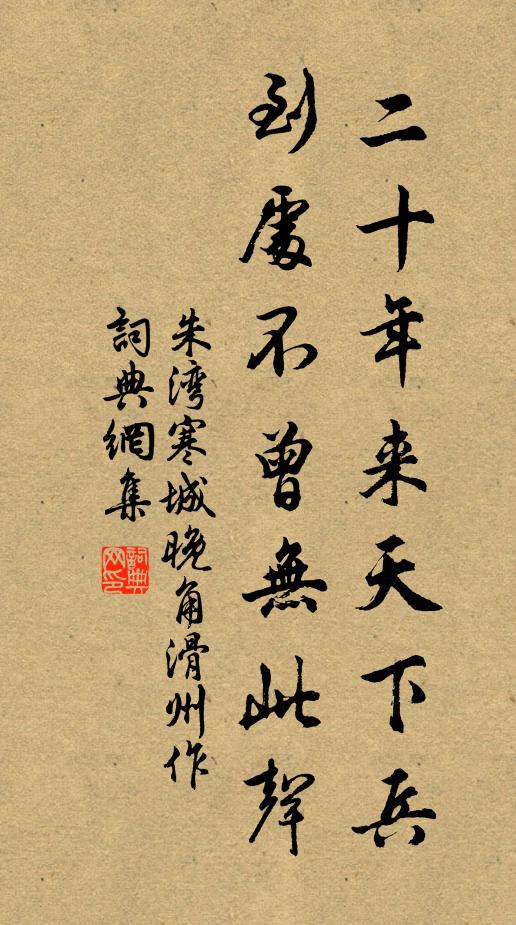 二十年来天下兵
到處不曾無此聲
朱湾寒城晚角滑州作
詞典網集
詞典网印